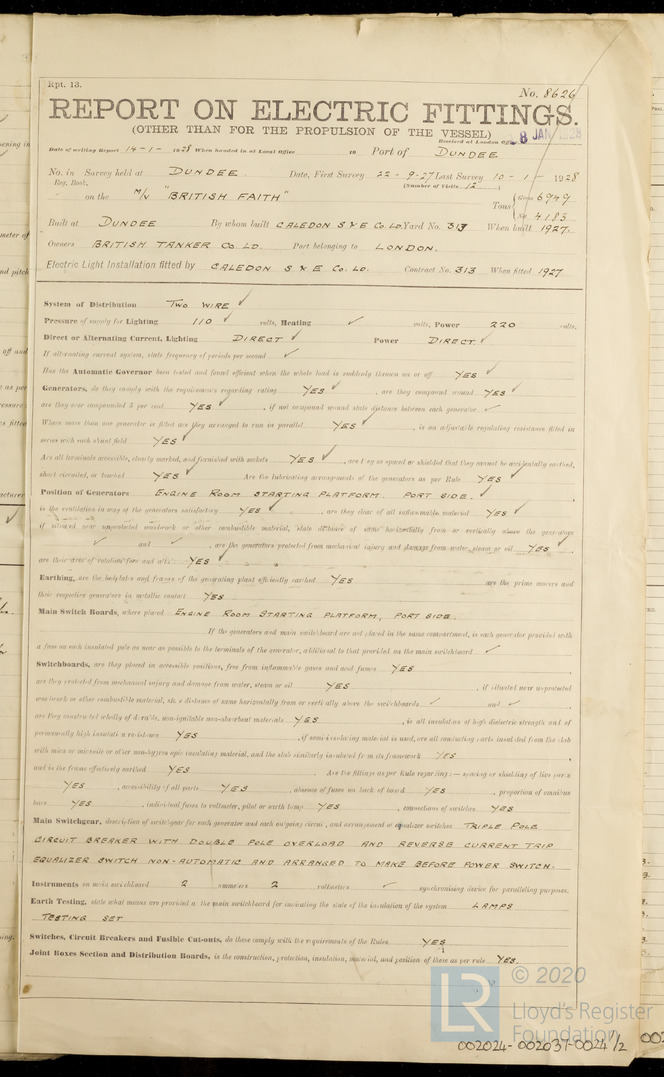 Rpt. 13.
No. 8626
REPORT ON ELECTRIC FITTINGS.
(OTHER THAN FOR THE PROPULSION OF THE VESSEL)
8 JAN 1928
Received at London Office
Date of writing Report 14-1-1928 When handed in at Local Office 19 Port of DUNDEE
No. in Reg. Book. Survey held at DUNDEE. Date, First Survey 22-9-27 Last Survey 10-1-1928
(Number of Visits 12)
on the M/V "BRITISH FAITH" Tons { Gross 6949
Net 4183
Built at DUNDEE By whom built CALEDON S & E Co. LD. Yard No. 313 When built 1927.
Owners BRITISH TANKER Co. LD. Port belonging to LONDON.
Electric Light Installation fitted by CALEDON S & E Co. LD. Contract No. 313 When fitted 1927
System of Distribution TWO WIRE ✓
Pressure of supply for Lighting 110 ✓ volts, Heating ✓ volts, Power 220 volts.
Direct or Alternating Current, Lighting DIRECT ✓ Power DIRECT. ✓
If alternating current system, state frequency of periods per second ✓
Has the Automatic Governor been tested and found efficient when the whole load is suddenly thrown on or off YES ✓
Generators, do they comply with the requirements regarding rating YES ✓, are they compound wound YES ✓
are they over compounded 5 per cent. YES ✓, if not compound wound state distance between each generator ✓
Where more than one generator is fitted are they arranged to run in parallel YES ✓, is an adjustable regulating resistance fitted in
series with each shunt field YES ✓
Are all terminals accessible, clearly marked, and furnished with sockets YES ✓, are they so spaced or shielded that they cannot be accidentally earthed,
short circuited, or touched YES ✓ Are the lubricating arrangements of the generators as per Rule YES ✓
Position of Generators ENGINE ROOM STARTING PLATFORM. PORT SIDE. ✓
is the ventilation in way of the generators satisfactory YES ✓, are they clear of all inflammable material YES ✓
if situated near unprotected woodwork or other combustible material, state distance of same horizontally from or vertically above the generators
✓ and ✓, are the generators protected from mechanical injury and damage from water, steam or oil YES ✓,
are their axes of rotation fore and aft YES ✓
Earthing, are the bedplates and frames of the generating plant efficiently earthed YES are the prime movers and
their respective generators in metallic contact YES
Main Switch Boards, where placed ENGINE ROOM STARTING PLATFORM, PORT SIDE.
If the generators and main switchboard are not placed in the same compartment, is each generator provided with
a fuse on each insulated pole as near as possible to the terminals of the generator, additional to that provided on the main switchboard ✓
Switchboards, are they placed in accessible positions, free from inflammable gases and acid fumes YES,
are they protected from mechanical injury and damage from water, steam or oil YES, if situated near unprotected
woodwork or other combustible material, state distance of same horizontally from or vertically above the switchboards ✓ and ✓,
are they constructed wholly of durable, non-ignitable non-absorbent materials YES, is all insulation of high dielectric strength and of
permanently high insulation resistance YES, if semi-insulating material is used, are all conducting parts insulated from the slab
with mica or micanite or other non-hygroscopic insulating material, and the slab similarly insulated from its framework YES,
and is the frame effectively earthed YES. Are the fittings as per Rule regarding:— spacing or shielding of live parts
YES, accessibility of all parts YES, absence of fuses on back of board YES, proportion of omnibus
bars YES, individual fuses to voltmeter, pilot or earth lamp YES, connections of switches YES
Main Switchgear, description of switchgear for each generator and each outgoing circuit, and arrangement of equalizer switches TRIPLE POLE
CIRCUIT BREAKER WITH DOUBLE POLE OVERLOAD AND REVERSE CURRENT TRIP
EQUALIZER SWITCH NON-AUTOMATIC AND ARRANGED TO MAKE BEFORE POWER SWITCH.
Instruments on main switchboard 2 ammeters 2 voltmeters ✓ synchronising device for paralleling purposes.
Earth Testing, state what means are provided at the main switchboard for indicating the state of the insulation of the system LAMPS
TESTING SET
Switches, Circuit Breakers and Fusible Cut-outs, do these comply with the requirements of the Rules YES
Joint Boxes Section and Distribution Boards, is the construction, protection, insulation, material, and position of these as per rule YES.
© 2020
LR
Lloyd's Register
Foundation
002024-002037-0024 1/2